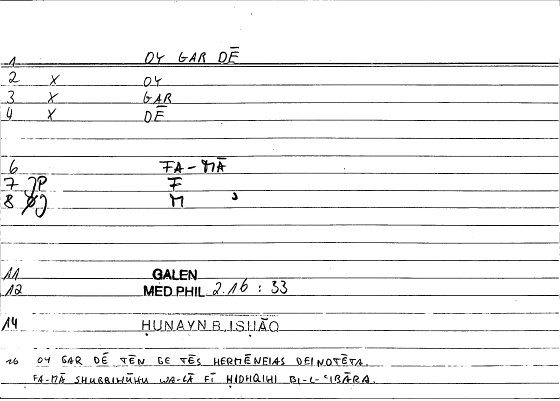 1 OY GAR DĒ
2 X OY
3 X GAR
4 X DĒ
6 FA-MĀ
7 JP F
8 J M
11 GALEN
12 MED PHIL 2.16 : 33
14 ḤUNAYN B. ISḤĀQ
16 OY GAR DĒ TĒN GE TĒS HERMĒNEIAS DEINOTĒTA.
FA-MĀ SHUBBIHŪHU WA-LĀ FĪ ḤIDHQIHI BI-L-ʿIBĀRA.